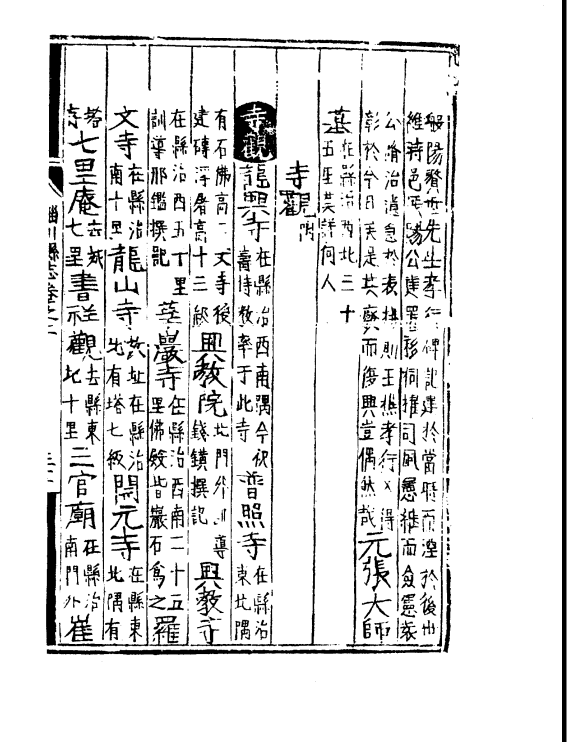 般陽賢哲先生孝行碑記建於當時而湮於後世
維時邑侯陽公建置移祠司風憲維而僉憲袁
公脩治息於表揚則王樵孝行又得
彰於今日矣是其廢而復興豈偶然哉元張大師
墓在縣治西北三十五里莫詳何人
寺觀附
寺觀龍興寺在縣治西南隅今祝壽持教率于此寺普照寺在縣治東北隅
有石佛高二丈寺後建磚浮屠高十三級興教院北門外訓導錢鑌撰記興教寺
在縣治西五十里訓導那鑑撰記華巖寺在縣治西南二十五里佛殿皆巖石為之羅
文寺在縣治南十里龍山寺故址在縣治北有塔七級開元寺在縣東北隅有
塔寺七里庵去城七里書祥觀去縣東北十里三官廟在縣治南門外崔
淄川縣志卷之二